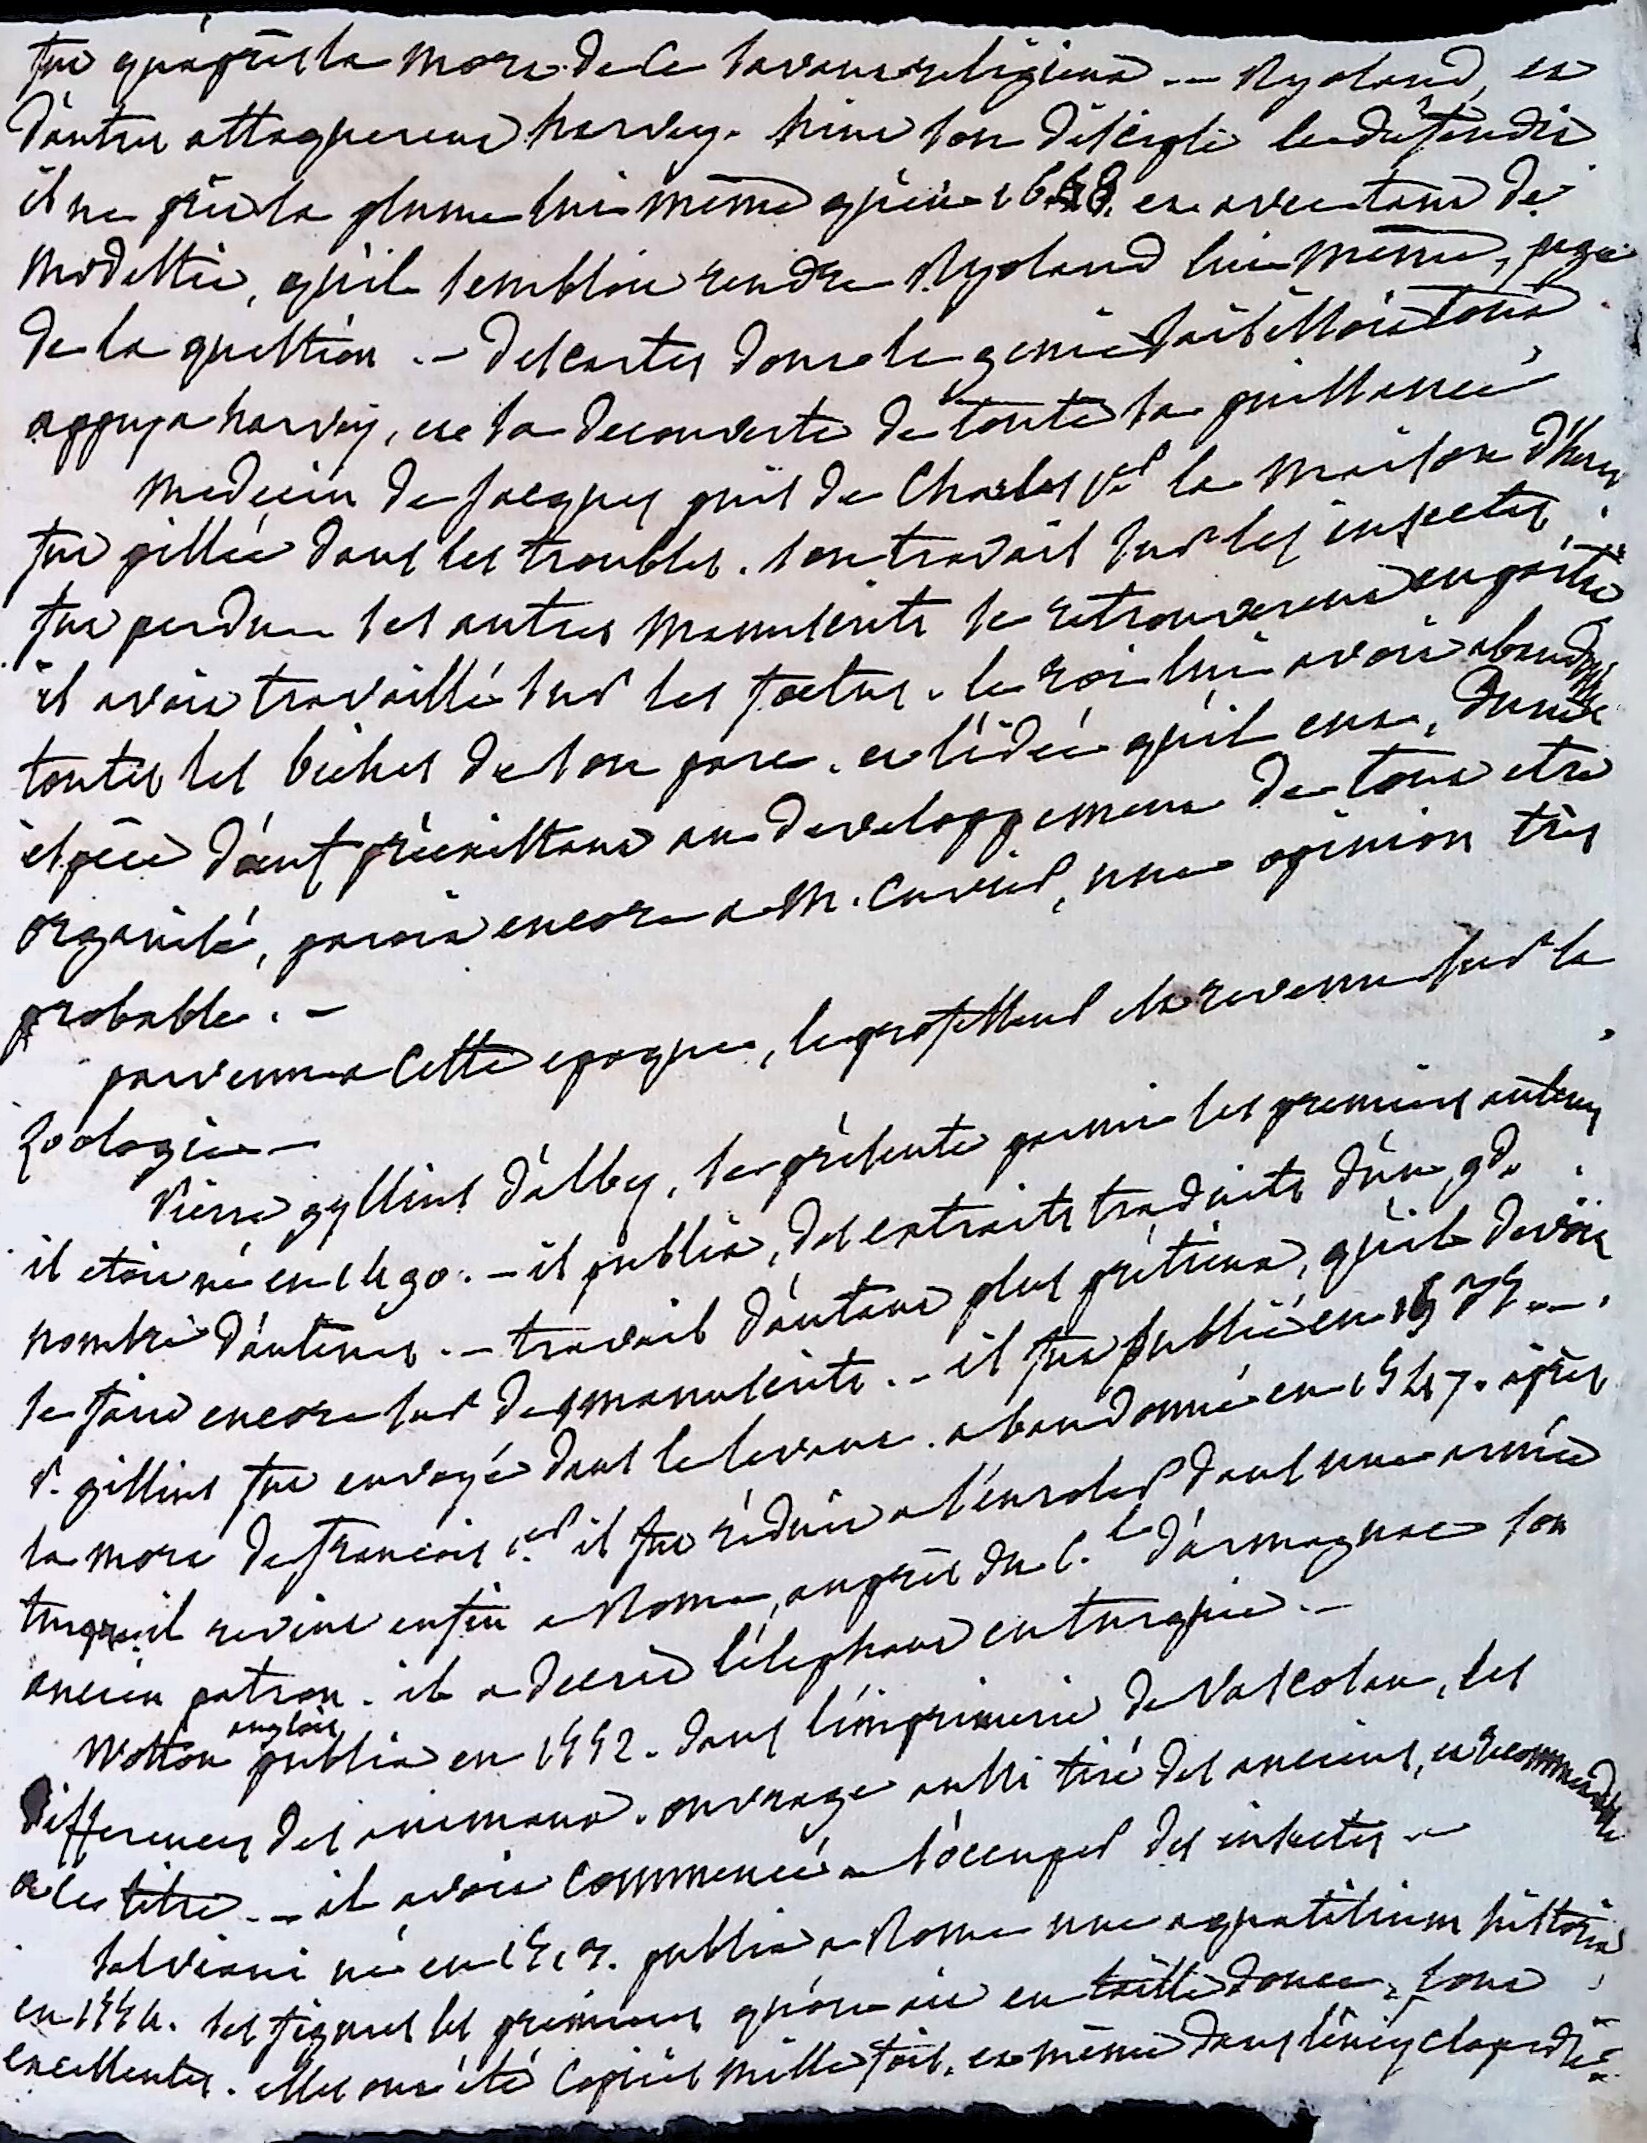 fut qu'après la mort de ce savant religieux. — Ryoland, et
d'autres attaquerent harvey. hint son disciple le défendit
il ne prit la plume lui même qu'en 1648. et avec tant de
modestie, qu'il sembloit rendre Ryoland lui même, juge
de la question. — descartes dont le genie saisissoit tout
appuya harvey, et sa decouverte de toute sa puissance
medecin de Jacques puis de Charles 1er la maison d'harvey
fut pillée dans les troubles. son travail sur les insectes
fut perdu ses autres manuscrits se retrouverent en partie
il avoit travaillé sur les foetus. le roi lui avoit abandonné
toutes les biches de son parc. et l'idée qu'il eut, d'une
espèce d'oeuf préexistant au developpement de tout etre
organisé, paroit encore a M. Cuvier, une opinion très
probable. —
parvenu a cette epoque, le professeur est revenu sur la
Zoologie —
Pierre gyllius d'alby, se présente parmi les premiers auteurs
il etoit né en 1490. — il publia, des extraits traduits d'un gd.
nombre d'auteurs. — travail d'autant plus prétieux, qu'il devoit
se faire encore sur des manuscrits. — il fut publié en
P. gillius fut envoyé dans le levant. abandonné en 1547. après
la mort de francois 1er il fut réduit a s'enroler dans une armée
turque il revint enfin a Rome, auprès du C.l d'armagnac son
ancien patron. il a decrit l'élephant en turquie. —
Wotton anglois publia en 1552. dans l'imprimerie de Vascosan, les
differences des animaux. ouvrage aussi tiré des anciens, et recommandable
a ces titre. — il avoit commencé a s'occuper des insectes —
Salviani né en publia a Rome une aquatilium historia
en 1554. ses figures les premieres qu'on ait en taille douce, sont
excellentes. elles ont été copiées mille fois, et même dans l'encyclopedie